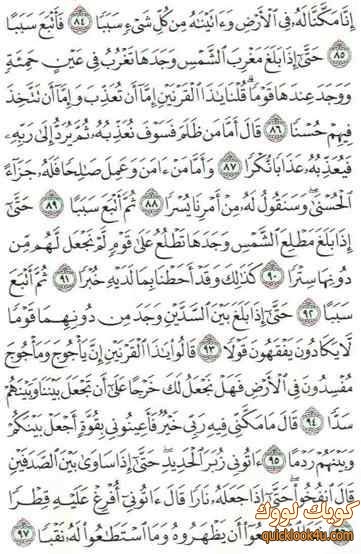 إِنَّا مَكَّنَّا لَهُۥ فِى ٱلْأَرْضِ وَءَاتَيْنَٰهُ مِن كُلِّ شَىْءٍ سَبَبًا ٨٤ فَأَتْبَعَ سَبَبًا
٨٥ حَتَّىٰٓ إِذَا بَلَغَ مَغْرِبَ ٱلشَّمْسِ وَجَدَهَا تَغْرُبُ فِى عَيْنٍ حَمِئَةٍ
وَوَجَدَ عِندَهَا قَوْمًا قُلْنَا يَٰذَا ٱلْقَرْنَيْنِ إِمَّآ أَن تُعَذِّبَ وَإِمَّآ أَن تَتَّخِذَ
فِيهِمْ حُسْنًا ٨٦ قَالَ أَمَّا مَن ظَلَمَ فَسَوْفَ نُعَذِّبُهُۥ ثُمَّ يُرَدُّ إِلَىٰ رَبِّهِۦ
فَيُعَذِّبُهُۥ عَذَابًا نُّكْرًا ٨٧ وَأَمَّا مَنْ ءَامَنَ وَعَمِلَ صَٰلِحًا فَلَهُۥ جَزَآءً
ٱلْحُسْنَىٰ وَسَنَقُولُ لَهُۥ مِنْ أَمْرِنَا يُسْرًا ٨٨ ثُمَّ أَتْبَعَ سَبَبًا ٨٩ حَتَّىٰٓ
إِذَا بَلَغَ مَطْلِعَ ٱلشَّمْسِ وَجَدَهَا تَطْلُعُ عَلَىٰ قَوْمٍ لَّمْ نَجْعَل لَّهُم مِّن
دُونِهَا سِتْرًا ٩٠ كَذَٰلِكَ وَقَدْ أَحَطْنَا بِمَا لَدَيْهِ خُبْرًا ٩١ ثُمَّ أَتْبَعَ
سَبَبًا ٩٢ حَتَّىٰٓ إِذَا بَلَغَ بَيْنَ ٱلسَّدَّيْنِ وَجَدَ مِن دُونِهِمَا قَوْمًا
لَّا يَكَادُونَ يَفْقَهُونَ قَوْلًا ٩٣ قَالُوا۟ يَٰذَا ٱلْقَرْنَيْنِ إِنَّ يَأْجُوجَ وَمَأْجُوجَ
مُفْسِدُونَ فِى ٱلْأَرْضِ فَهَلْ نَجْعَلُ لَكَ خَرْجًا عَلَىٰٓ أَن تَجْعَلَ بَيْنَنَا وَبَيْنَهُمْ
سَدًّا ٩٤ قَالَ مَا مَكَّنِّى فِيهِ رَبِّى خَيْرٌ فَأَعِينُونِى بِقُوَّةٍ أَجْعَلْ بَيْنَكُمْ
وَبَيْنَهُمْ رَدْمًا ٩٥ ءَاتُونِى زُبَرَ ٱلْحَدِيدِ حَتَّىٰٓ إِذَا سَاوَىٰ بَيْنَ ٱلصَّدَفَيْنِ
قَالَ ٱنفُخُوا۟ حَتَّىٰٓ إِذَا جَعَلَهُۥ نَارًا قَالَ ءَاتُونِىٓ أُفْرِغْ عَلَيْهِ قِطْرًا
أَن يَظْهَرُوهُ وَمَا ٱسْتَطَٰعُوا۟ لَهُۥ نَقْبًا ٩٧
كويك لووك
quicklook4u.com